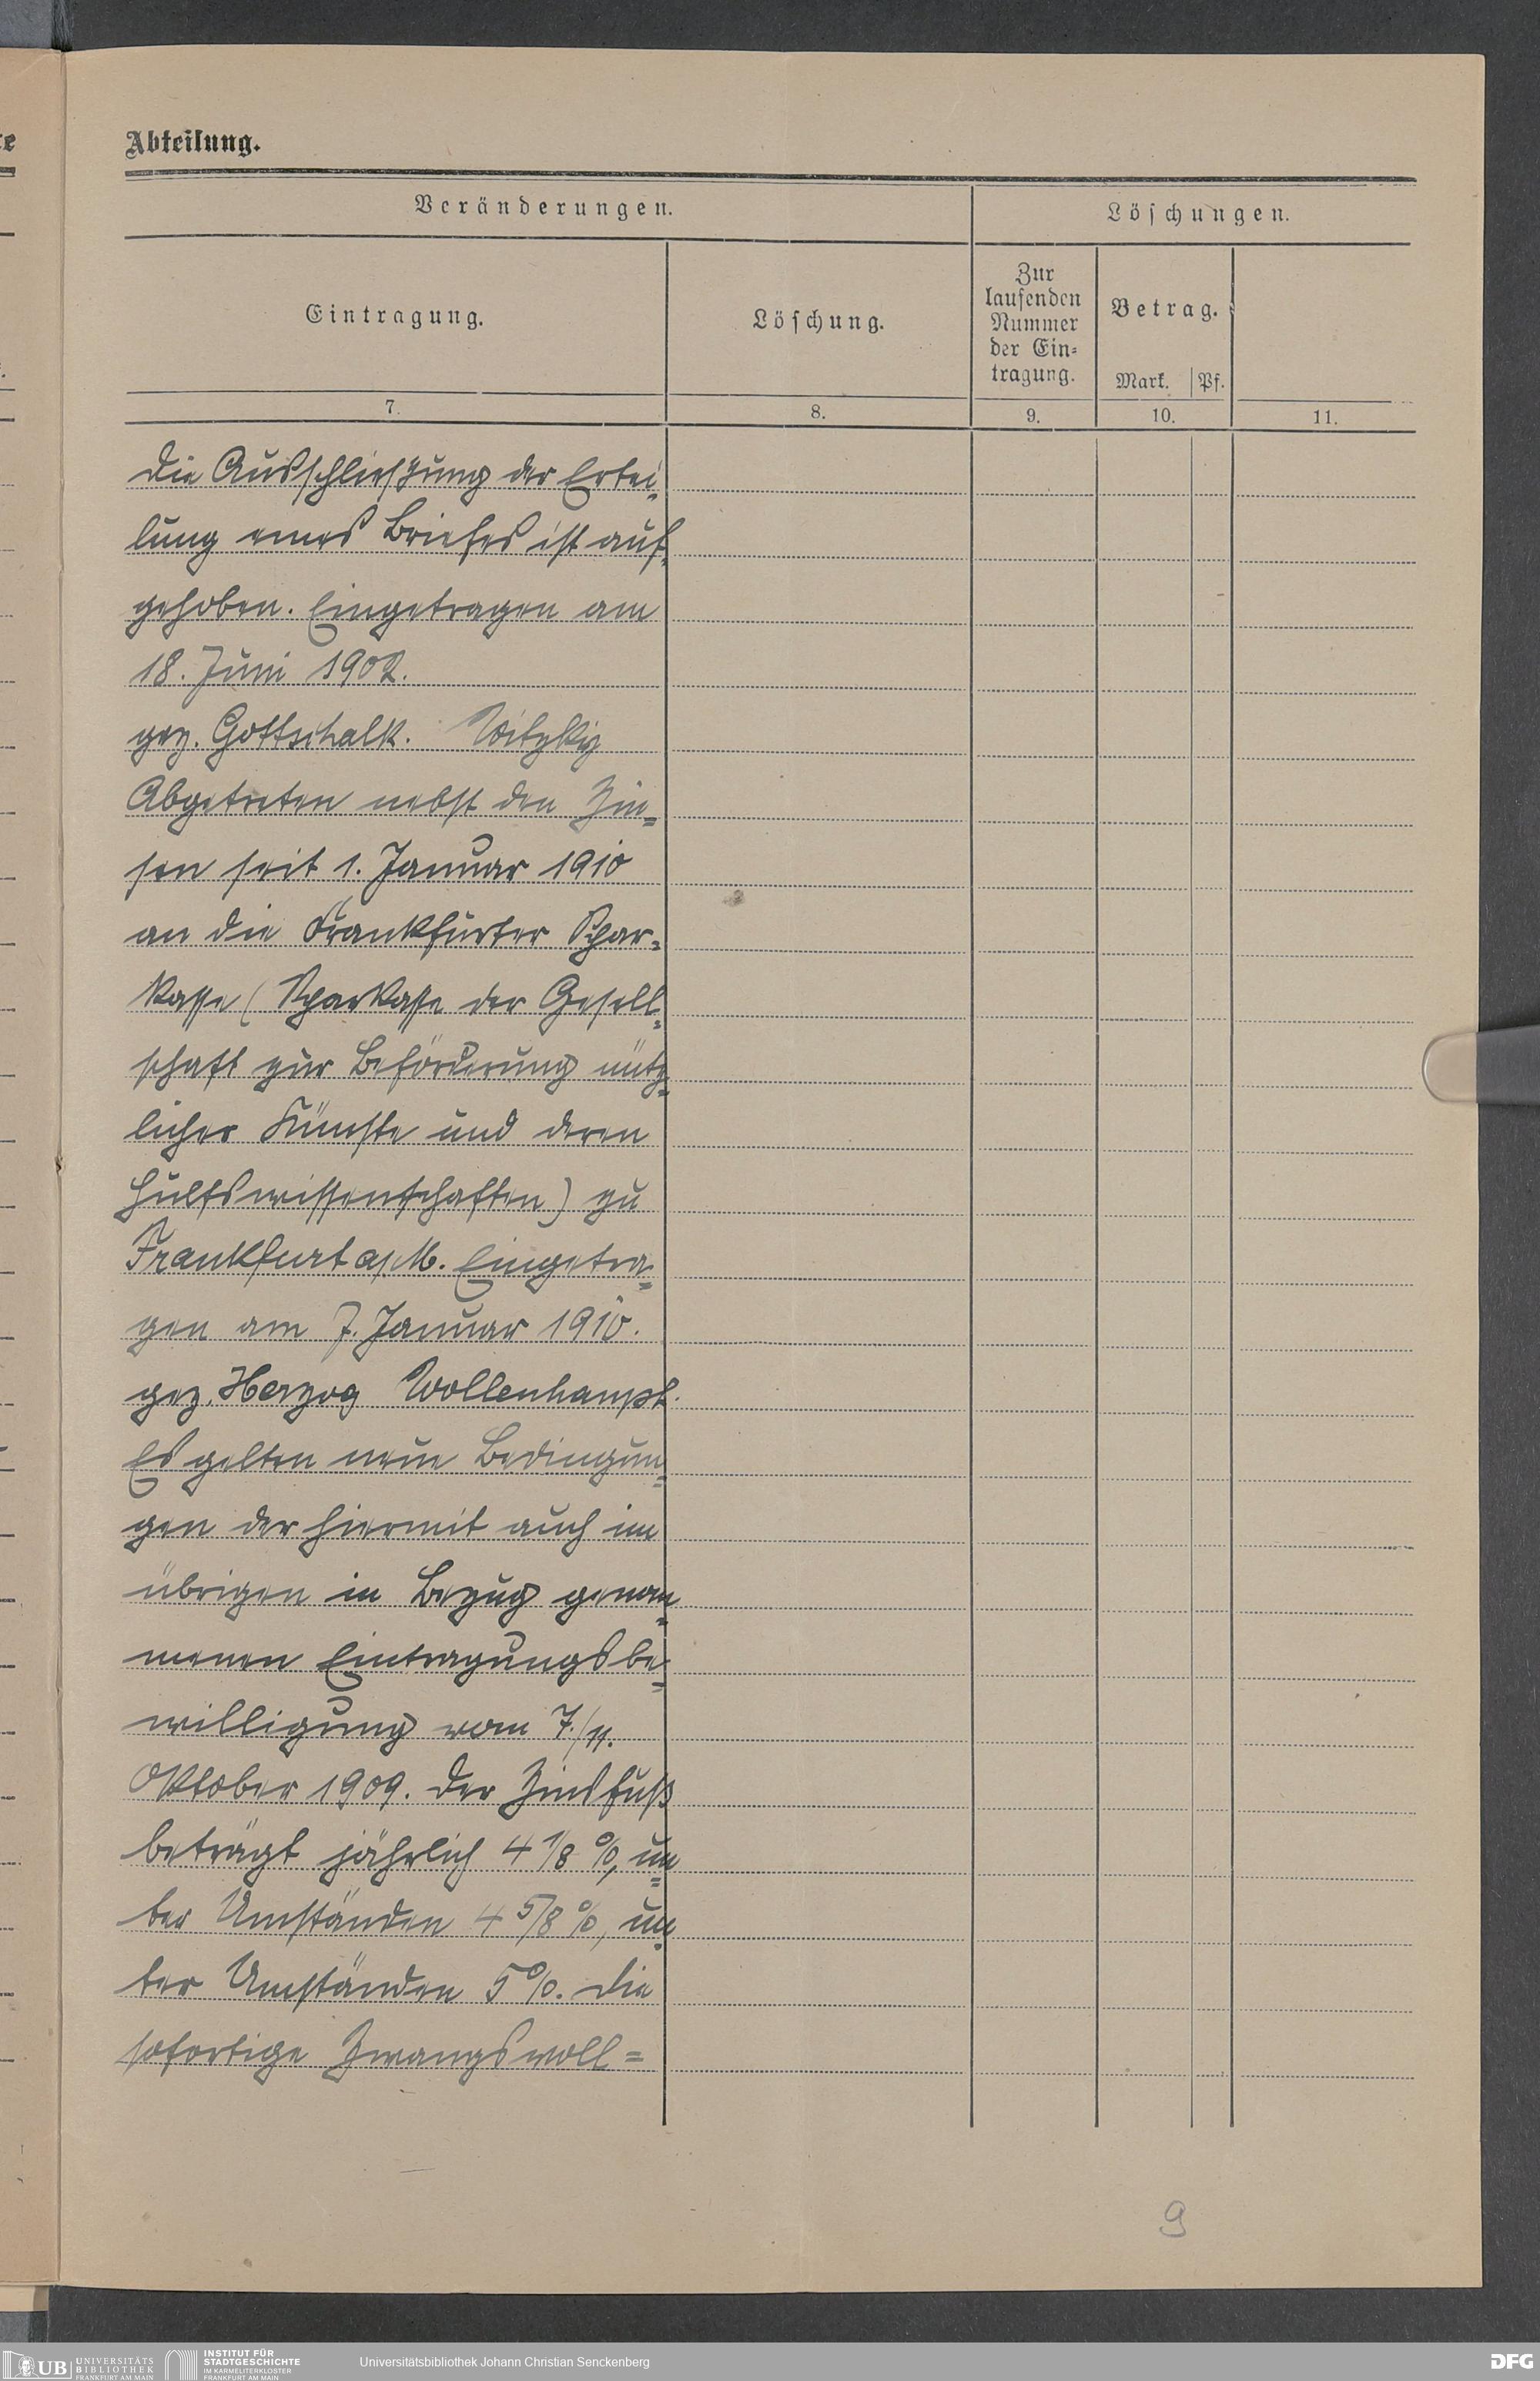 Abteilung.
Veränderungen.
Löschungen.
Eintragung.
Löschung.
Zur
laufenden
Nummer
der Ein-
tragung.
Betrag.
Mark. Pf.
7.
8.
9.
10.
11.
Die Ausschließung der Ertei-
lung eines Briefes ist auf-
gehoben. Eingetragen am
18. Juni 1902.
gez. Gottschalk. Witzky
Abgetreten nebst den Zin=
sen seit 1. Januar 1910
an die Frankfurter Spar=
kasse (Sparkasse der Gesell=
schaft zur Beförderung nütz=
licher Künste und deren
Hülfswissenschaften) zu
Frankfurt a/M. Eingetra=
gen am 7. Januar 1910.
gez. Herzog Wollenhaupt.
Es gelten neue Bedingun=
gen der hiermit auch im
übrigen in Bezug genom=
menen Eintragungsbe=
willigung vom 7./11.
Oktober 1909. Der Zinsfuß
beträgt jährlich 4 1/8 %, un=
ter Umständen 4 5/8 %, un=
ter Umständen 5 %. Die
sofortige Zwangsvoll=
9
UB
UNIVERSITÄTS
BIBLIOTHEK
FRANKFURT AM MAIN
INSTITUT FÜR
STADTGESCHICHTE
IM KARMELITERKLOSTER
FRANKFURT AM MAIN
Universitätsbibliothek Johann Christian Senckenberg
DFG